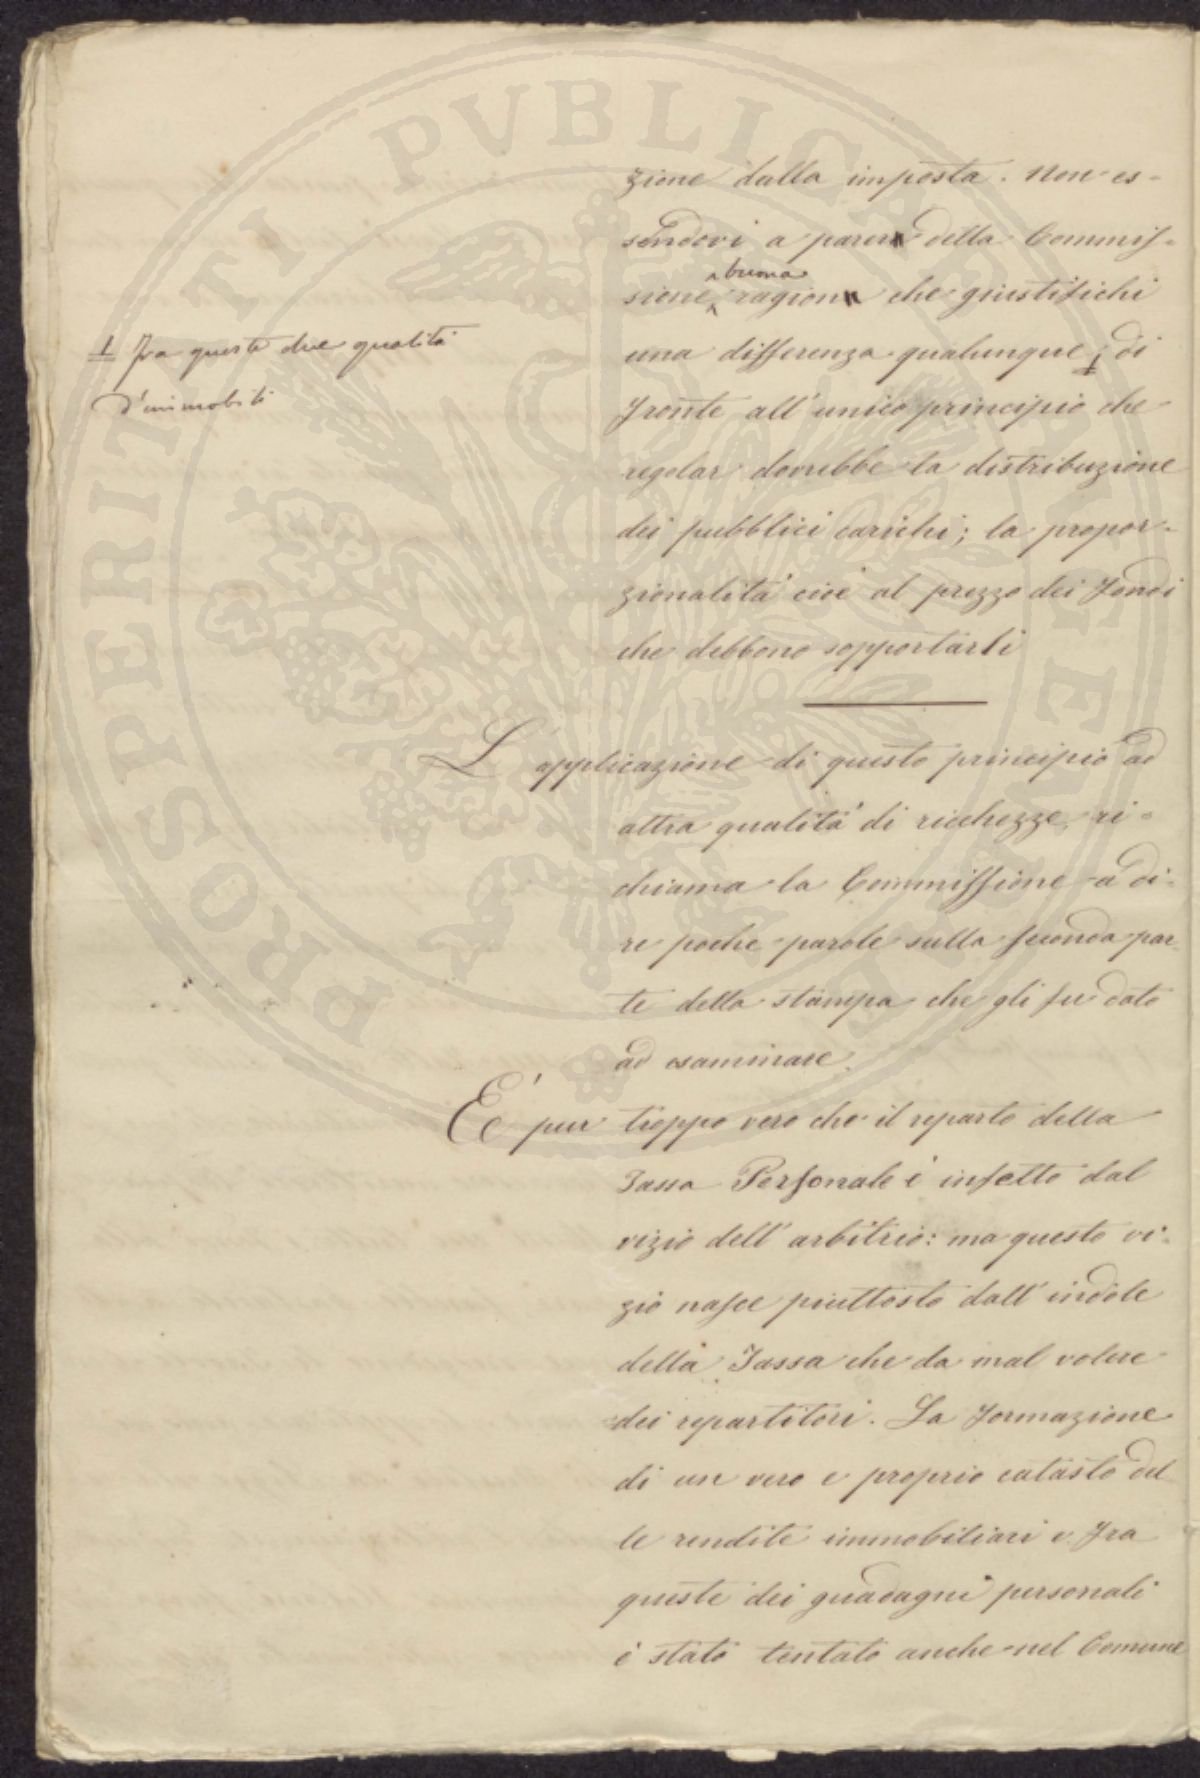 PROSPERITATI PVBLICAE AVGENDAE
zione dalla imposta. Non es-
sendovi a parere della Commis-
sione, buona ragione che giustifichi
1 fra queste due qualità
d'immobili
una differenza qualunque 1 di
fronte all'unico principio che
regolar dovrebbe la distribuzione
dei pubblici carichi; la propor-
zionalità cioè al prezzo dei fondi
che debbono sopportarli
L'applicazione di questo principio ad
altra qualità di ricchezze, ri-
chiama la Commissione a di-
re poche parole sulla seconda par-
te della stampa che gli fu dato
ad esaminare.
E' pur troppo vero che il reparto della
Tassa Personale è infetto dal
vizio dell'arbitrio: ma questo vi-
zio nasce piuttosto dall'indole
della Tassa che da mal volere
dei repartitori. La formazione
di un vero e proprio catasto del-
le rendite immobiliari e fra
queste dei guadagni personali
è stato tentato anche nel Comune